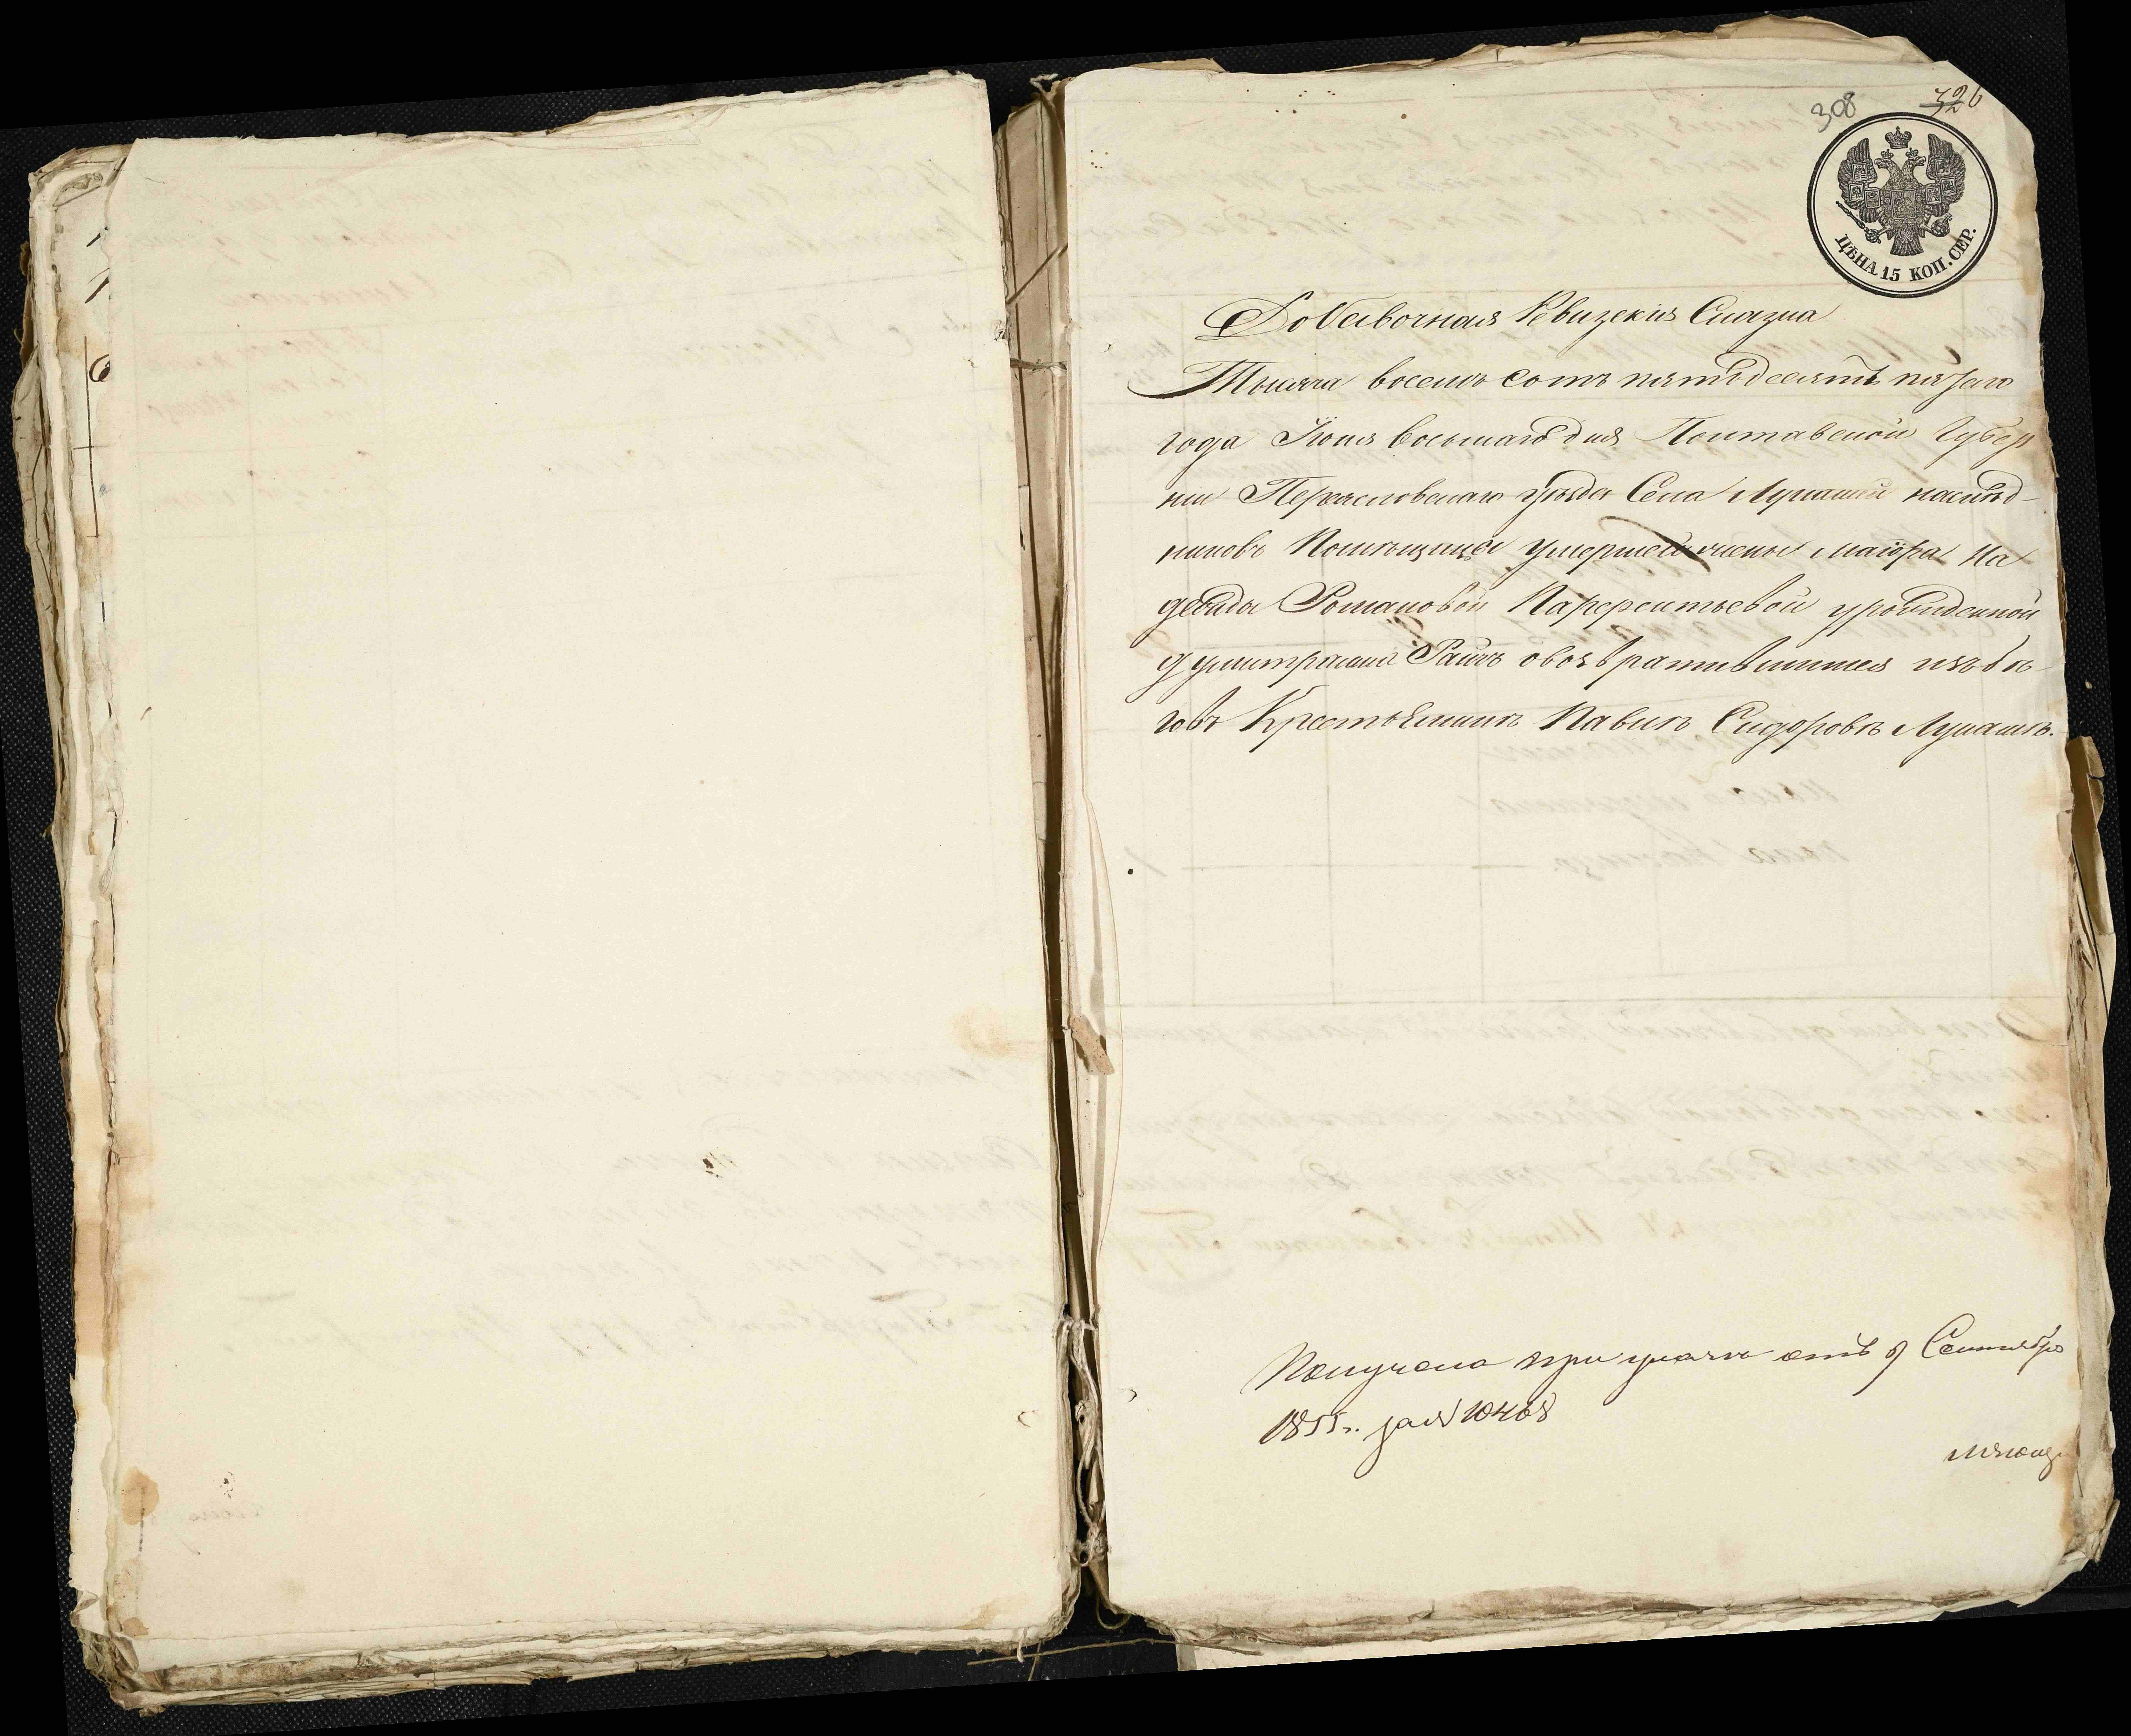 308
326
ЦѢНА 15 КОП. СЕР.
Добавочная Ревизская Сказка
Тысяча восемь сотъ пятьдесятъ пятаго
года Іюня восьмаго дня Полтавской Губер
ніи Переяславскаго уѣзда Села Лукашей наслѣд-
никовъ Помѣщицы умершей жены маіора На
дежды Романовой Парфентьевой урожденной
думитрашка Раичъ овозвратившимся избѣ-
говъ Крестьянинѣ Павлѣ Сидоровѣ Лукашѣ.
Получена при указѣ отъ 9 Сентября
1855 г. за № 10468